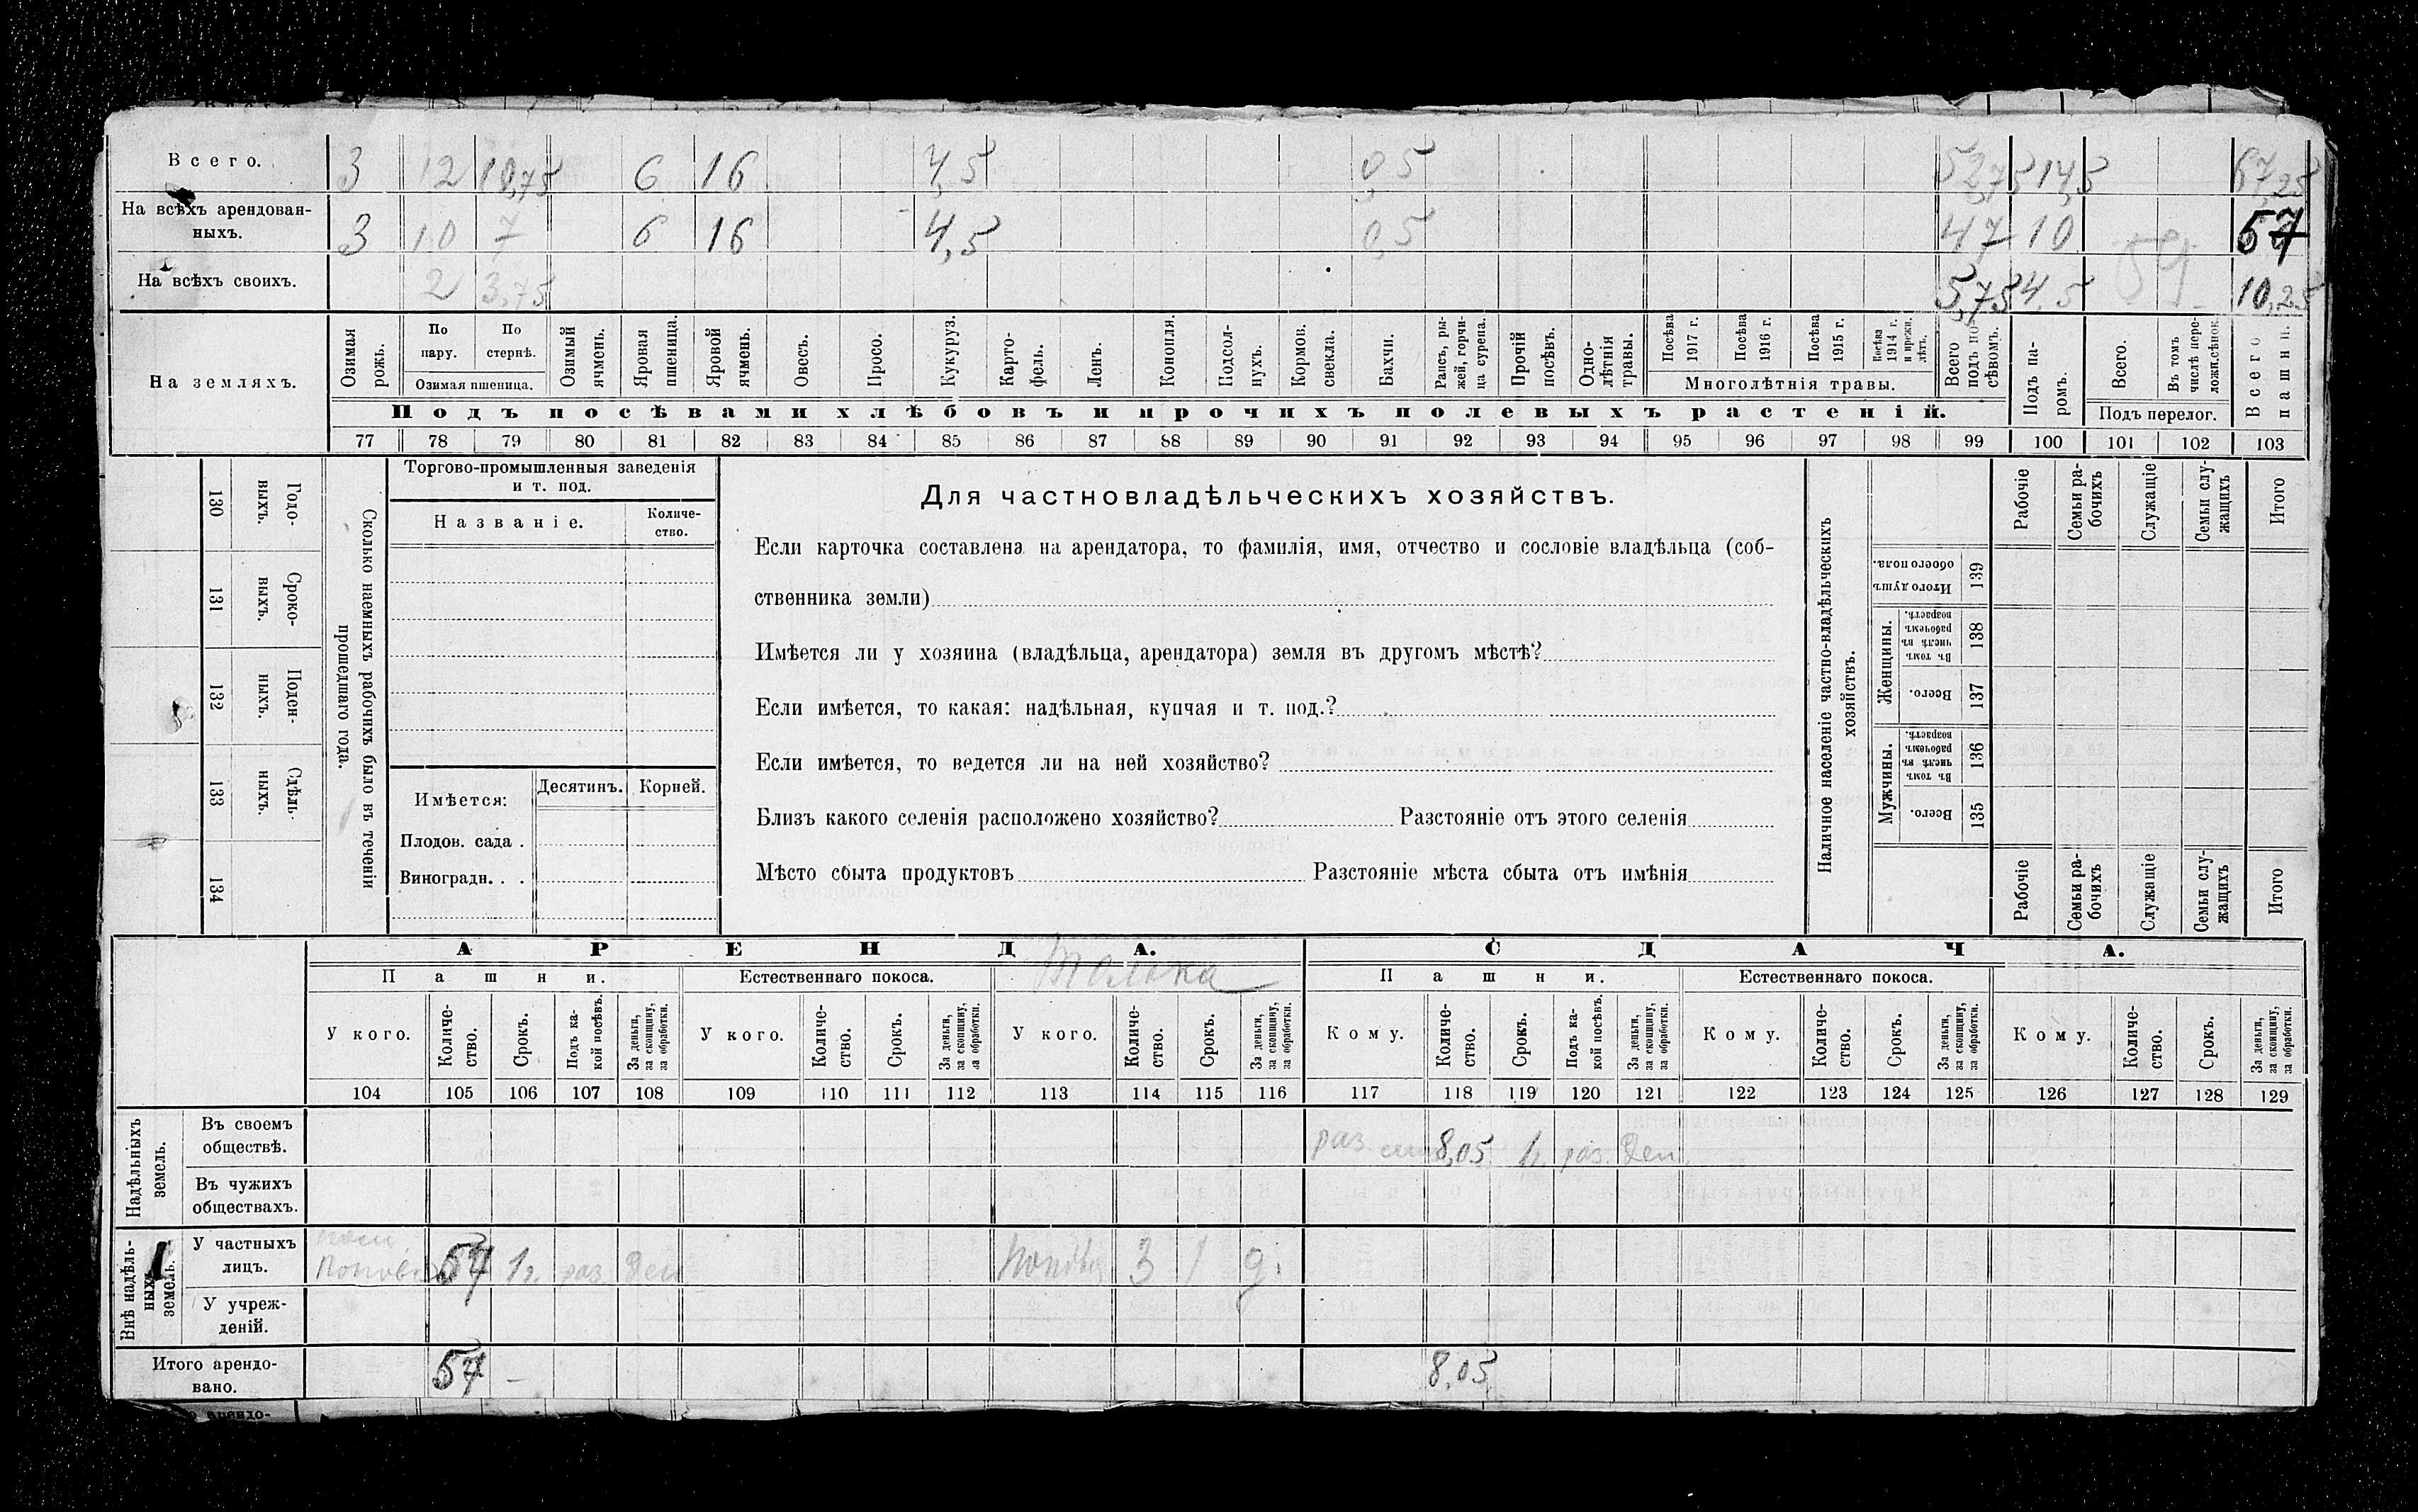 Всего. 3 12 10,75 6 16 4,5 0,5 52,75 14,5 67,25
На всѣхъ арендован-
ныхъ. 3 10 7 6 16 4,5 0,5 47 10 57
На всѣхъ своихъ. 2 3,75 5,75 4,5 59 10,25
На земляхъ.
Озимая рожь.
По пару.
По стернѣ.
Озимая пшеница.
Озимый ячмень.
Яровая пшеница.
Яровой ячмень.
Овесъ.
Просо.
Кукуруз.
Карто-
фель.
Ленъ.
Конопля.
Подсол-
нухъ.
Кормов. свекла.
Бахчи.
Рапсъ, ры-
жей, горчи-
ца сурепа.
Прочій посѣвъ.
Одно-
лѣтнія травы.
Посѣва 1917 г.
Посѣва 1916 г.
Посѣва 1915 г.
Посѣва 1914 г. и прежн. лѣтъ.
Многолѣтнія травы.
Всего подъ по-
сѣвомъ.
Подъ па-
ромъ.
Всего.
Въ томъ числѣ пере-
ложн.сѣнок.
Подъ перелог.
Всего пашни.
Подъ посѣвами хлѣбовъ и прочихъ полевыхъ растеній.
77 78 79 80 81 82 83 84 85 86 87 88 89 90 91 92 93 94 95 96 97 98 99 100 101 102 103
130 Годо-
выхъ.
131 Сроко-
выхъ.
132 Поден-
ныхъ.
133 Сдѣль-
ныхъ.
134
Сколько наемныхъ рабочихъ было въ теченіи
прошедшаго года.
Торгово-промышленныя заведенія
и т. под.
Названіе.
Количе-
ство.
Имѣется: Десятинъ. Корней.
Плодов. сада .
Виноградн. . .
Для частновладѣльческихъ хозяйствъ.
Если карточка составлена на арендатора, то фамилія, имя, отчество и сословіе владѣльца (соб-
ственника земли)
Имѣется ли у хозяина (владѣльца, арендатора) земля въ другомъ мѣстѣ?
Если имѣется, то какая: надѣльная, купчая и т. под.?
Если имѣется, то ведется ли на ней хозяйство?
Близъ какого селенія расположено хозяйство? Разстояніе отъ этого селенія
Мѣсто сбыта продуктовъ Разстояніе мѣста сбыта отъ имѣнія
Наличное населеніе частно-владѣльческихъ
хозяйствъ.
Рабочіе
Семьи ра-
бочихъ
Служащіе
Семьи слу-
жащихъ
Итого
Итого душъ обоего пола. 139
Женщины.
Въ томъ числѣ въ рабочемъ возрастѣ. 138
Всего. 137
Мужчины.
Въ томъ числѣ въ рабочемъ возрастѣ. 136
Всего. 135
Рабочіе
Семьи ра-
бочихъ
Служащіе
Семьи слу-
жащихъ
Итого
АРЕНДА.
СДАЧА.
Пашни. Естественнаго покоса. Толока Пашни. Естественнаго покоса.
У кого.
Количе-
ство.
Срокъ.
Подъ ка-
кой посѣвъ.
За деньги, за скопщину, за обработки.
У кого.
Количе-
ство.
Срокъ.
За деньги, за скопщину, за обработки.
У кого.
Количе-
ство.
Срокъ.
За деньги, за скопщину, за обработки.
Кому.
Количе-
ство.
Срокъ.
Подъ ка-
кой посѣвъ.
За деньги, за скопщину, за обработки.
Кому.
Количе-
ство.
Срокъ.
За деньги, за скопщину, за обработки.
Кому.
Количе-
ство.
Срокъ.
За деньги, за скопщину, за обработки.
104 105 106 107 108 109 110 111 112 113 114 115 116 117 118 119 120 121 122 123 124 125 126 127 128 129
Надѣльныхъ земель.
Въ своемъ
обществѣ. раз 8,05 1г. раз. Ден.
Въ чужихъ
обществахъ.
Внѣ надѣль-
ныхъ земель.
У частныхъ
лицъ. 57 1г. раз Ден. 3 1 д.
У учреж-
деній.
Итого арендо-
вано. 57 8,05
арендо-